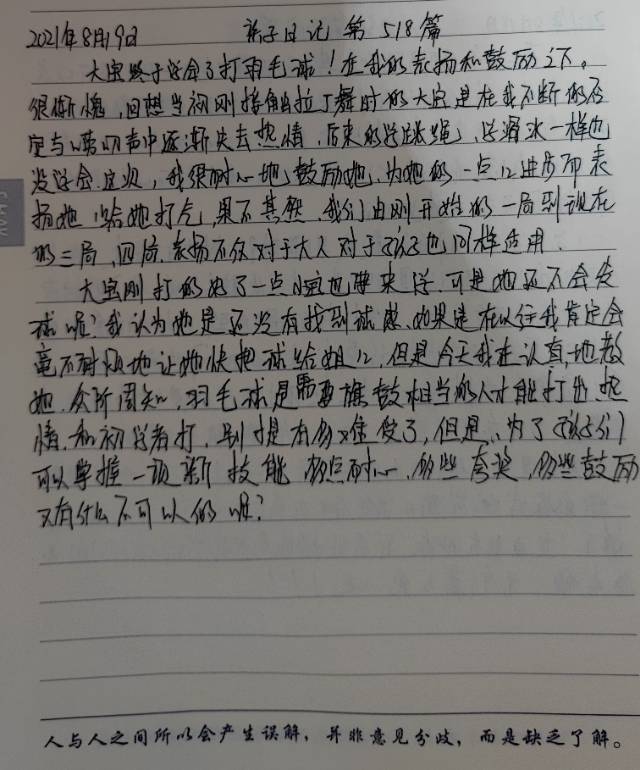 2021年8月19日 亲子日记 第518篇
大宝终于学会了打羽毛球!在我的表扬和鼓励之下。
很惭愧,回想当初刚接触拉丁舞时的大宝是在我不断的否
定与唠叨声中逐渐失去热情,后来的学跳绳,学滑冰一样也
没学会.这次,我很耐心地鼓励她,为她的一点儿进步而表
扬她,给她打气,果不其然.我们由刚开始的一局到现在
的三局,四局.表扬不仅对于大人对于孩子也同样适用.
大宝刚打的好了一点小宝也要来学.可是她还不会发
球呢?我认为她是还没有找到球感.如果是在以往我肯定会
毫不耐烦地让她快把球给姐儿,但是今天我在认真地教
她.众所周知,羽毛球是需要旗鼓相当的人才能打出热
情.和初学者打,别提有多难受了,但是,为了孩子们
可以掌握一项新技能 多点耐心,多些夸奖,多些鼓励
又有什么不可以的呢?
人与人之间所以会产生误解,并非意见分歧,而是缺乏了解。